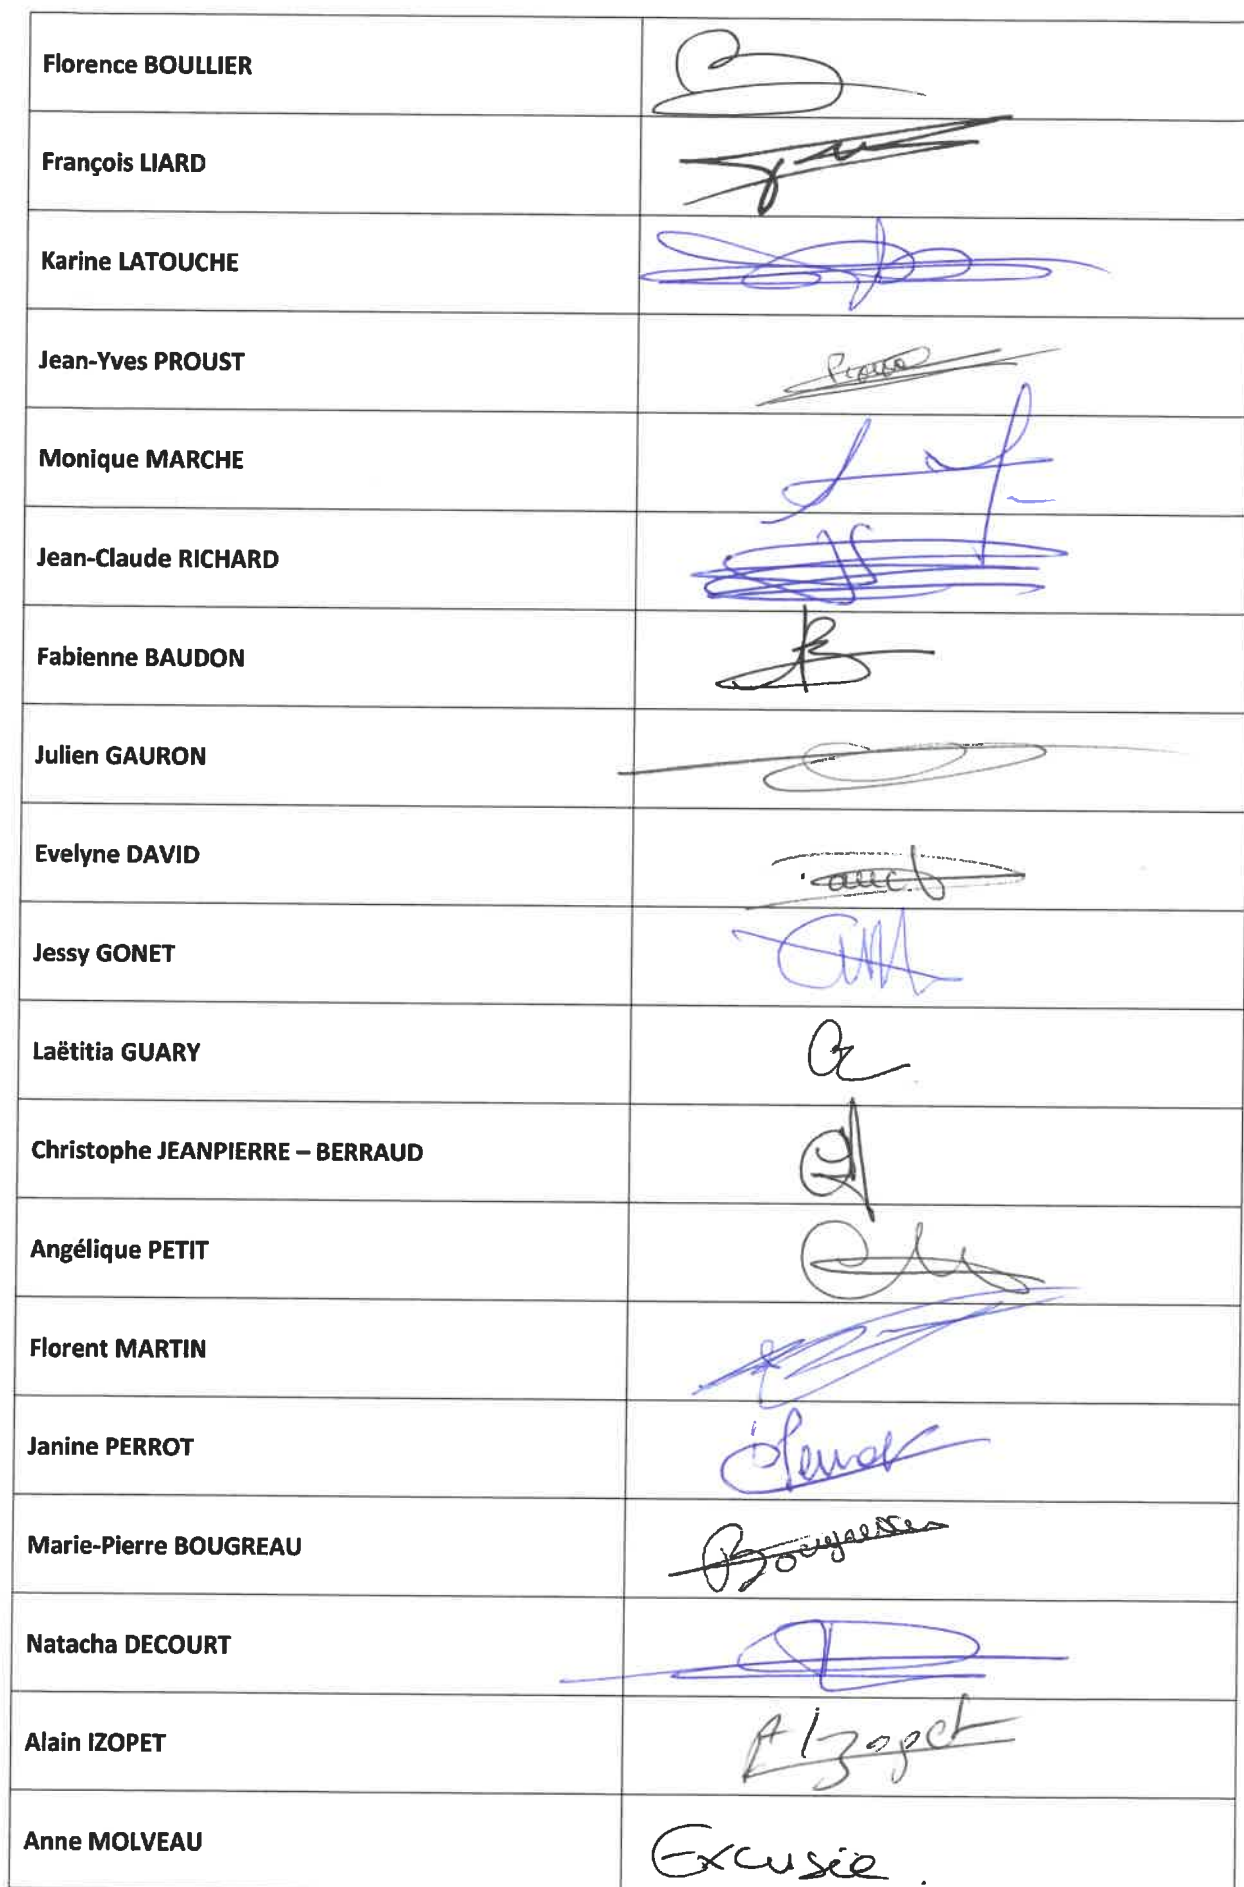 Florence BOULLIER
François LIARD
Karine LATOUCHE
Jean-Yves PROUST
Monique MARCHE
Jean-Claude RICHARD
Fabienne BAUDON
Julien GAURON
Evelyne DAVID
Jessy GONET
Laëtitia GUARY
Christophe JEANPIERRE – BERRAUD
Angélique PETIT
Florent MARTIN
Janine PERROT
Marie-Pierre BOUGREAU
Natacha DECOURT
Alain IZOPET AIzopet
Anne MOLVEAU Excusée.